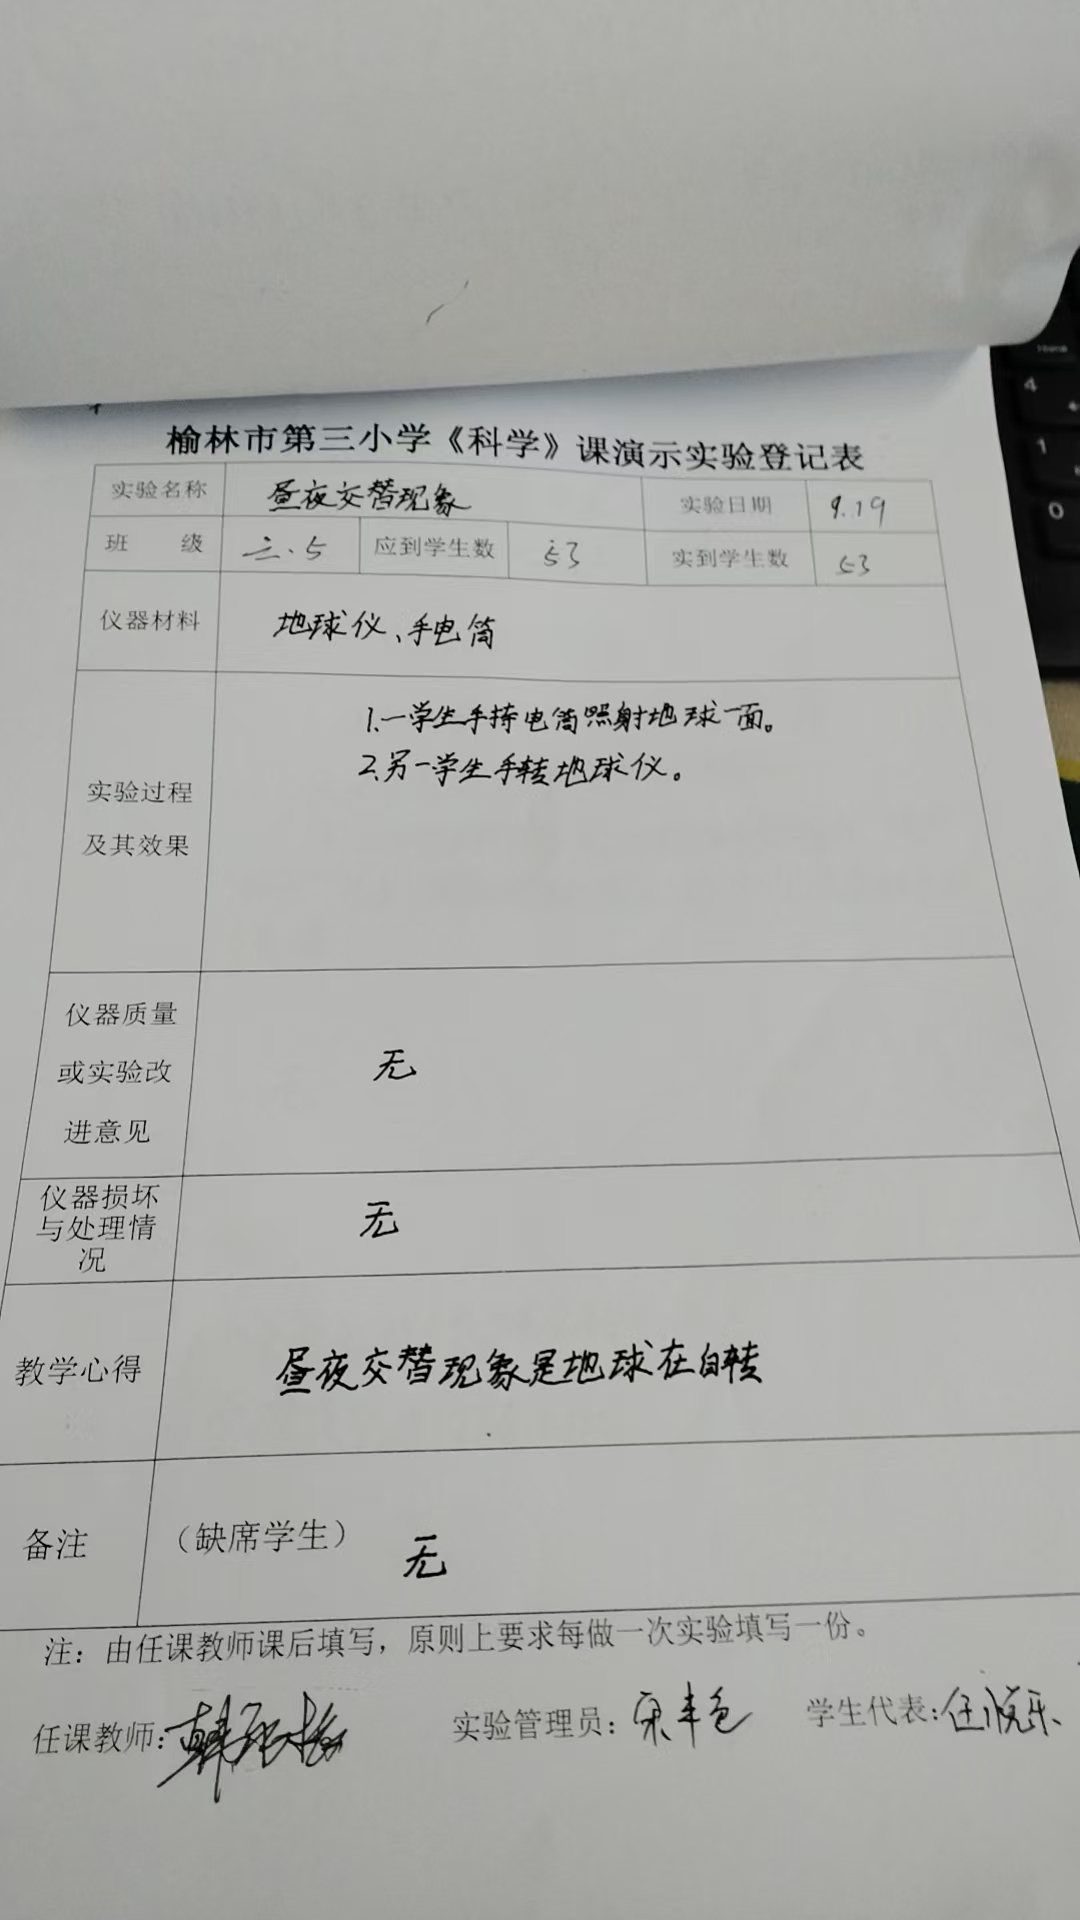 榆林市第三小学《科学》课演示实验登记表
实验名称 昼夜交替现象 实验日期 9.19
班 级 三.5 应到学生数 53 实到学生数 53
仪器材料 地球仪、手电筒
1.一学生手持电筒照射地球一面。
2.另一学生手转地球仪。
实验过程
及其效果
仪器质量
或实验改
进意见
无
仪器损坏
与处理情
况
无
教学心得 昼夜交替现象是地球在自转
备注 （缺席学生） 无
注：由任课教师课后填写，原则上要求每做一次实验填写一份。
任课教师： 实验管理员： 学生代表：
Home
4
1
0